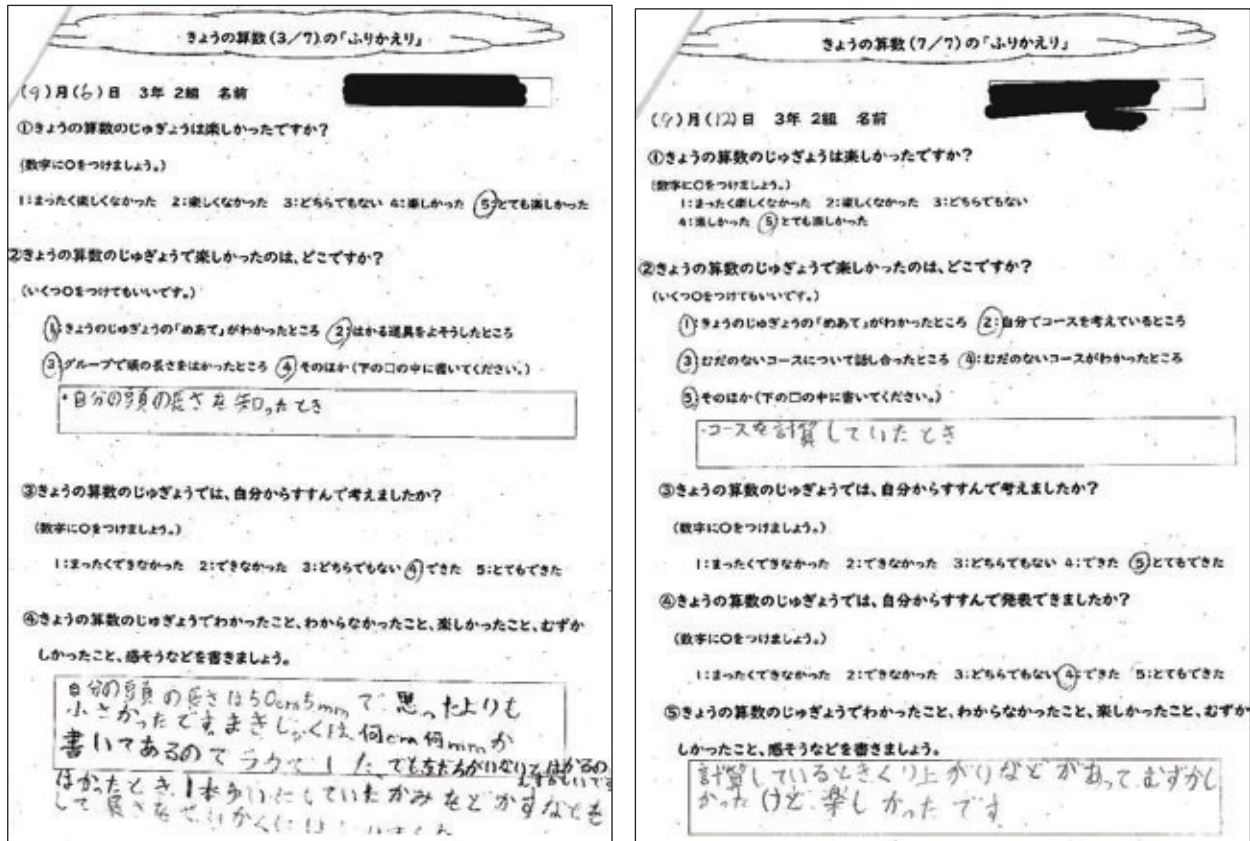 きょうの算数(3/7)の「ふりかえり」
(9)月(6)日 3年 2組 名前
①きょうの算数のじゅぎょうは楽しかったですか?
(数字に○をつけましょう。)
1:まったく楽しくなかった 2:楽しくなかった 3:どちらでもない 4:楽しかった 5:とても楽しかった
②きょうの算数のじゅぎょうで楽しかったのは、どこですか?
(いくつ○をつけてもいいです。)
1:きょうのじゅぎょうの「めあて」がわかったところ 2:はかる道具をよそうしたところ
3:グループで頭の長さをはかったところ 4:そのほか(下の□の中に書いてください。)
・自分の頭の長さを知ったとき
③きょうの算数のじゅぎょうでは、自分からすすんで考えましたか?
(数字に○をつけましょう。)
1:まったくできなかった 2:できなかった 3:どちらでもない 4:できた 5:とてもできた
④きょうの算数のじゅぎょうでわかったこと、わからなかったこと、楽しかったこと、むずか
しかったこと、感そうなどを書きましょう。
自分の頭の長さは50cm5mmで思ったよりも
小さかったです。まきじゃくは、何cm何mmか
書いてあるのでラクでした、でも友だちがいないとはかるの
むずかしいです
はかったとき、1本
していたかみをどかすなども
して長さを
きょうの算数(7/7)の「ふりかえり」
(9)月(12)日 3年 2組 名前
①きょうの算数のじゅぎょうは楽しかったですか?
(数字に○をつけましょう。)
1:まったく楽しくなかった 2:楽しくなかった 3:どちらでもない
4:楽しかった 5:とても楽しかった
②きょうの算数のじゅぎょうで楽しかったのは、どこですか?
(いくつ○をつけてもいいです。)
1:きょうのじゅぎょうの「めあて」がわかったところ 2:自分でコースを考えているところ
3:むだのないコースについて話し合ったところ 4:むだのないコースがわかったところ
5:そのほか(下の□の中に書いてください。)
・コースを計算していたとき
③きょうの算数のじゅぎょうでは、自分からすすんで考えましたか?
(数字に○をつけましょう。)
1:まったくできなかった 2:できなかった 3:どちらでもない 4:できた 5:とてもできた
④きょうの算数のじゅぎょうでは、自分からすすんで発表できましたか?
(数字に○をつけましょう。)
1:まったくできなかった 2:できなかった 3:どちらでもない 4:できた 5:とてもできた
⑤きょうの算数のじゅぎょうでわかったこと、わからなかったこと、楽しかったこと、むずか
しかったこと、感そうなどを書きましょう。
計算しているときくり上がりなどがあって、むずかし
かったけど、楽しかったです